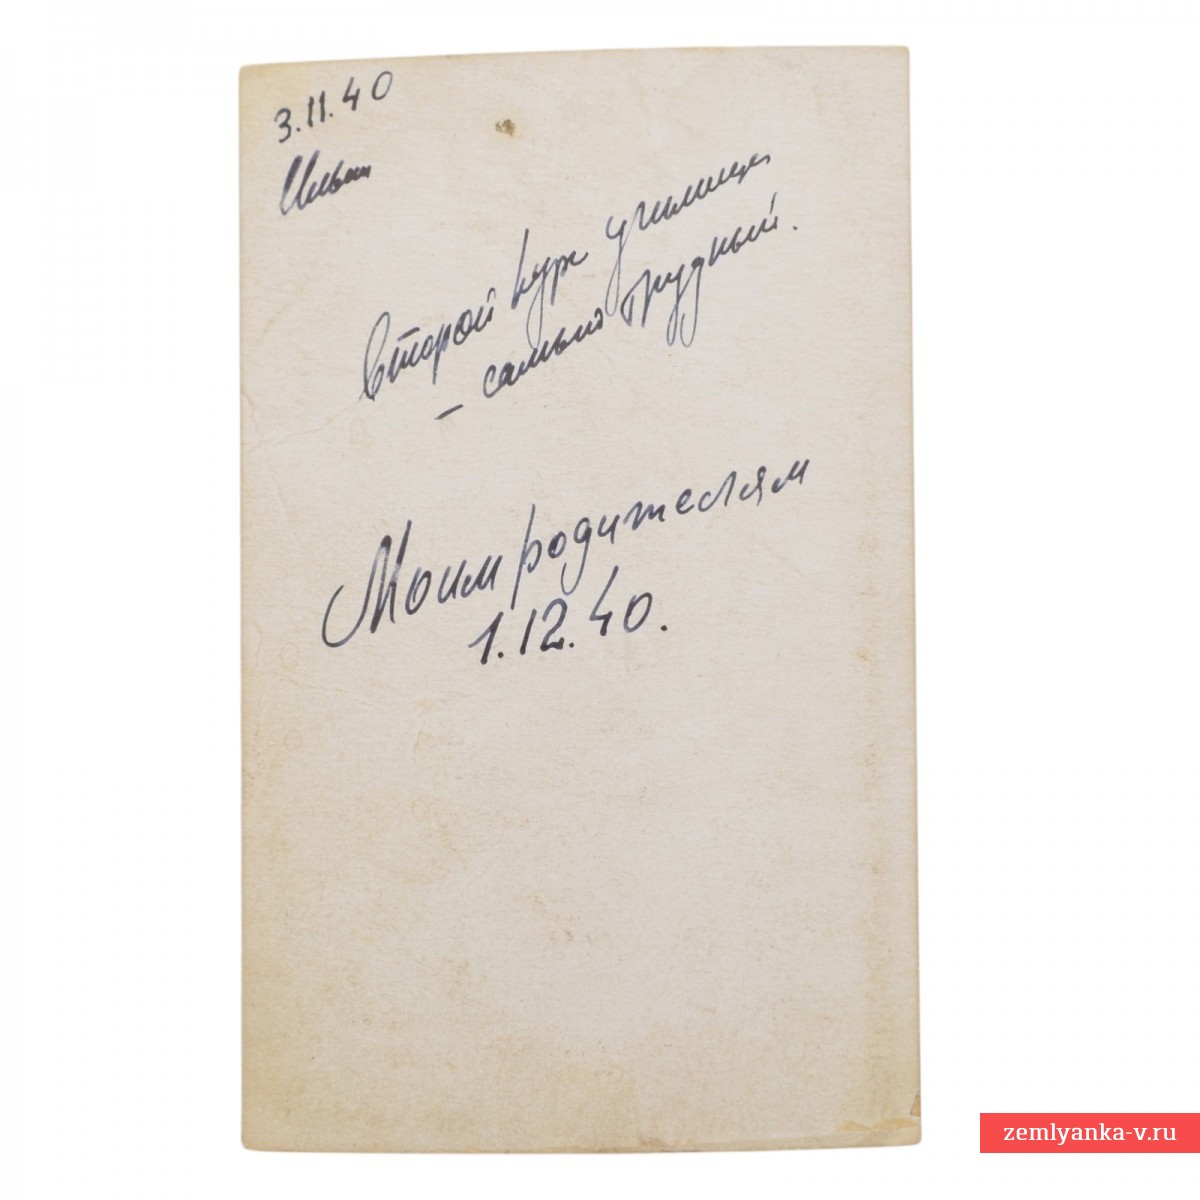 3.11.40
Ильин
Второй курс училища
- самый трудный.
Моим родителям
1.12.40.
zemlyanka-v.ru